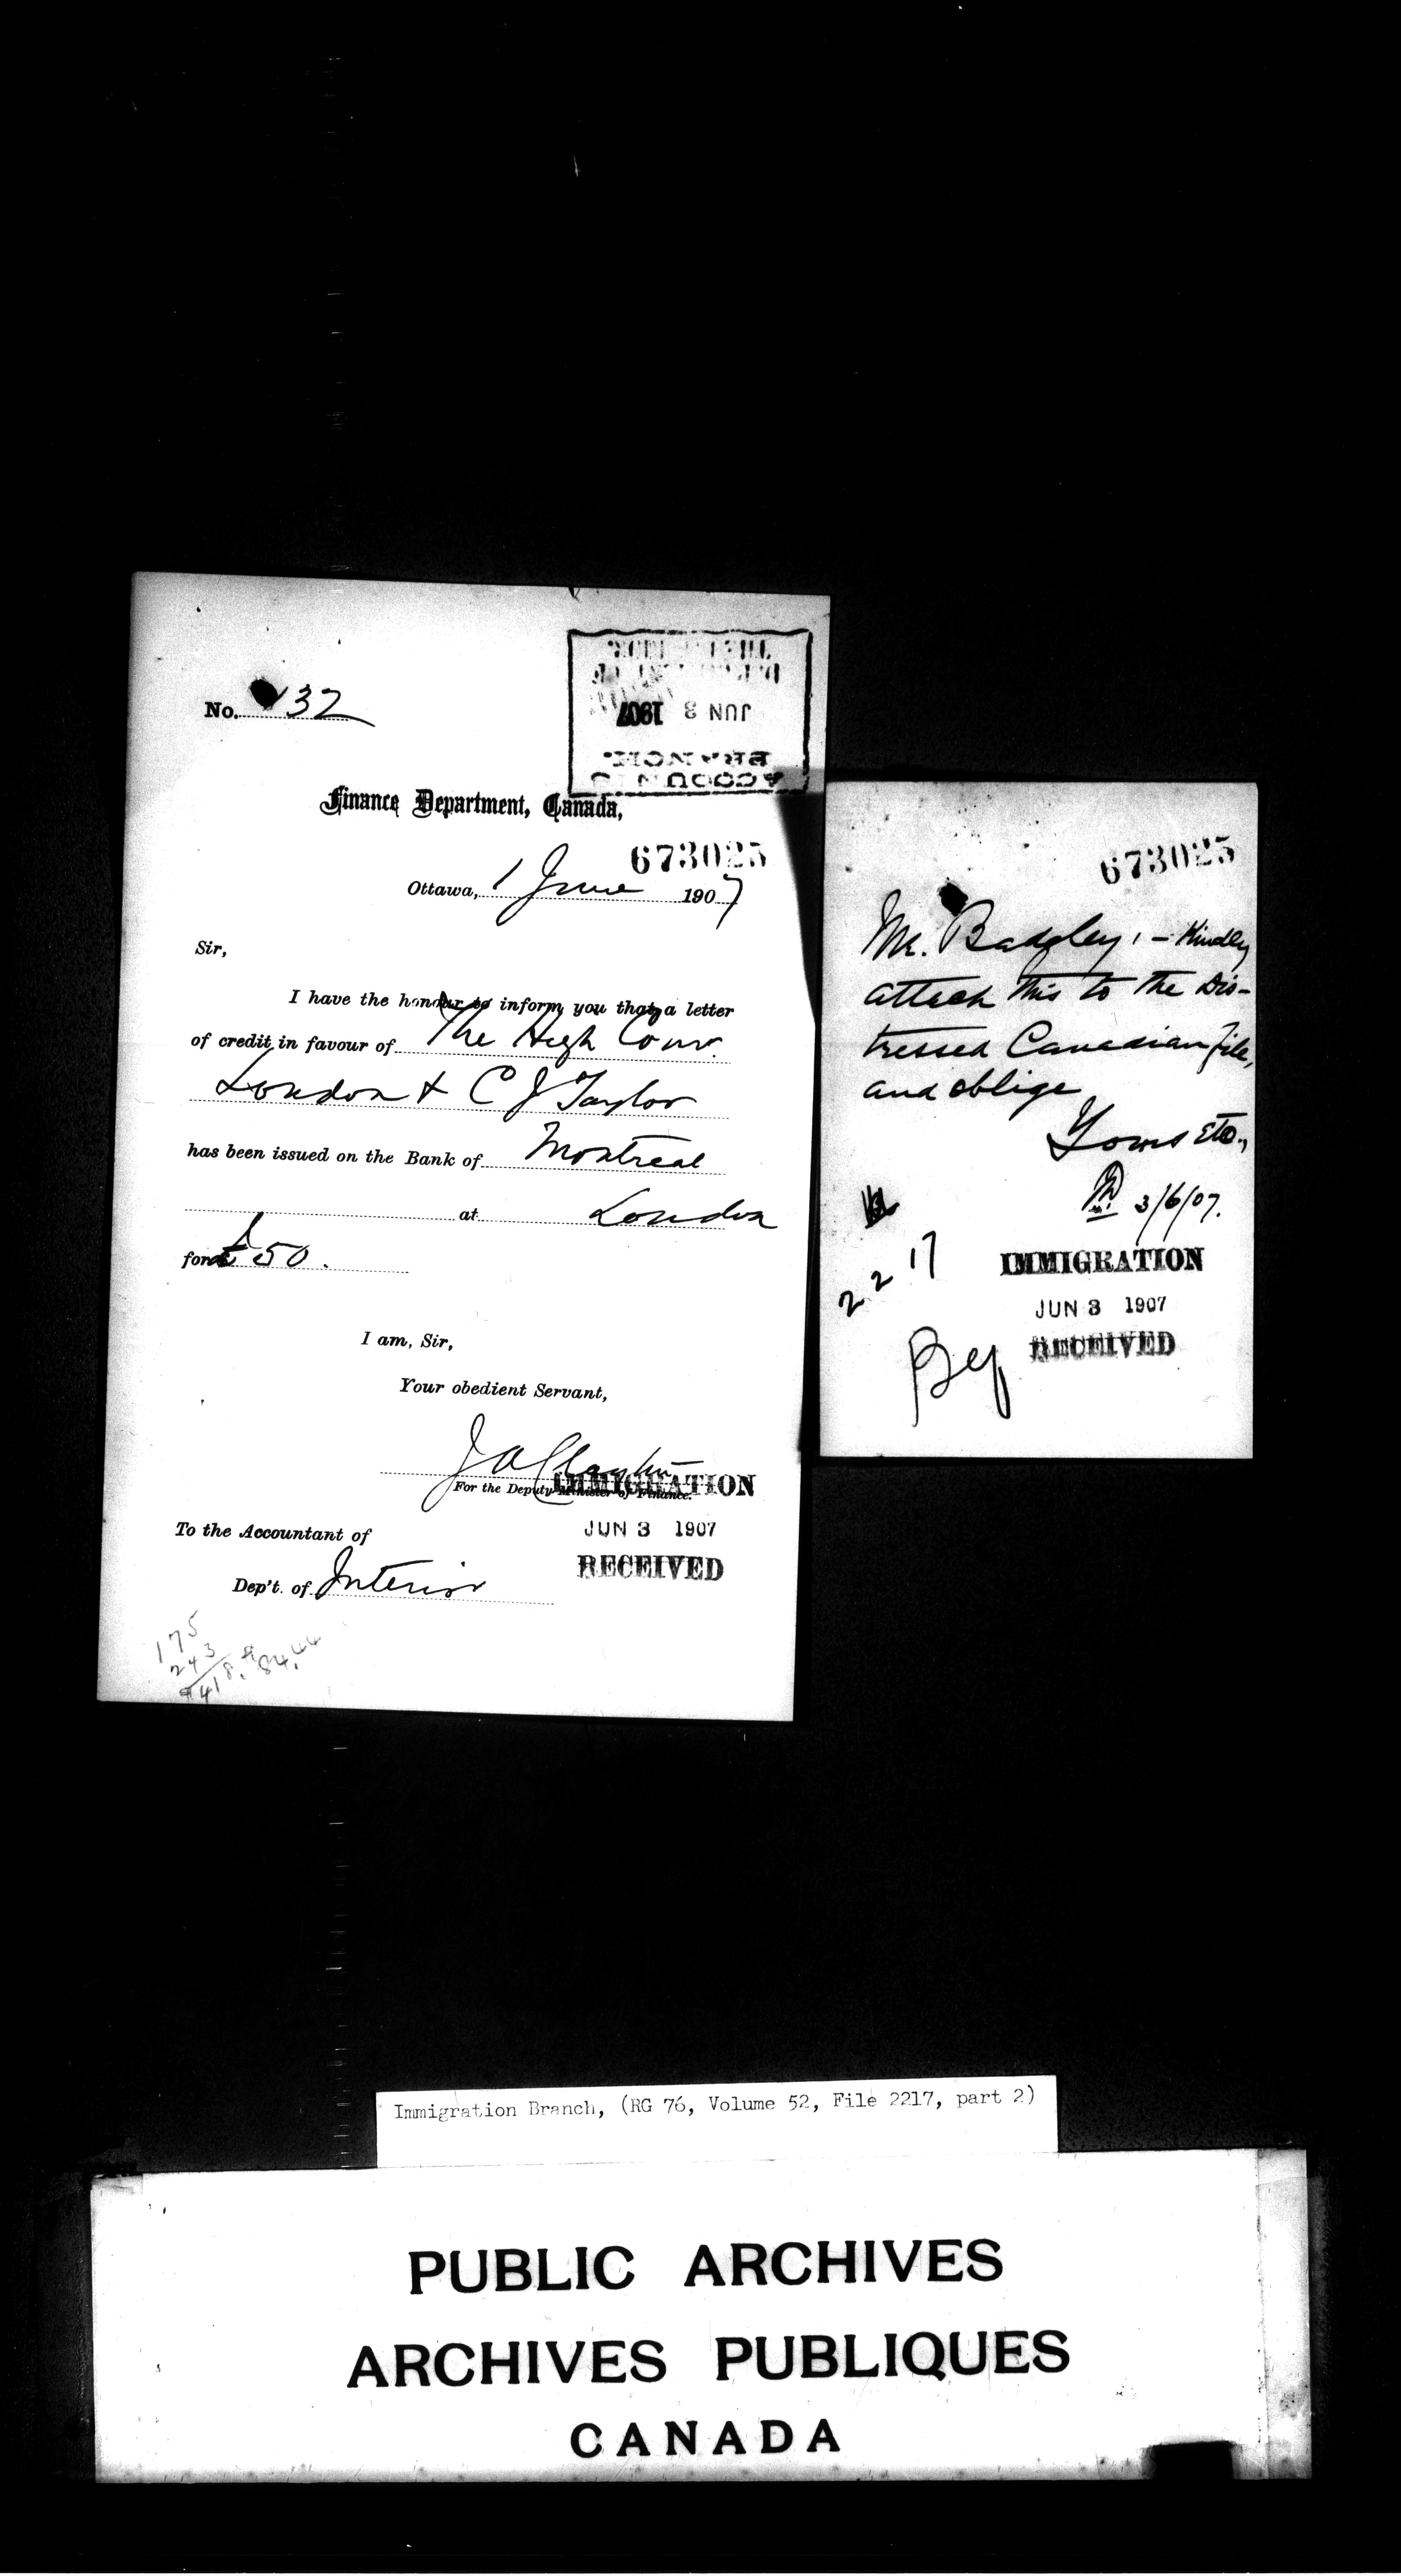 No. 132
DEPARTMENT OF
THE INTERIOR
JUN 3 1907
ACCOUNTS
BRANCH.
Finance Department, Canada,
673025
Ottawa, 1 June 1907
Sir,
I have the honour to inform you that a letter
of credit in favour of The High Comr.
London & C J Taylor
has been issued on the Bank of Montreal
at London
for £50.
I am, Sir,
Your obedient Servant,
For the Deputy Minister of Finance.
IMMIGRATION
JUN 3 1907
RECEIVED
To the Accountant of
Dep't. of Interior
175
243
$418. $84.44
673025
Mr. Badgley, - Kindly
attach this to the Dis-
tressed Canadian file,
and oblige
Yours etc.,
3/6/07.
2217
IMMIGRATION
JUN 3 1907
RECEIVED
Immigration Branch, (RG 76, Volume 52, File 2217, part 2)
PUBLIC ARCHIVES
ARCHIVES PUBLIQUES
CANADA